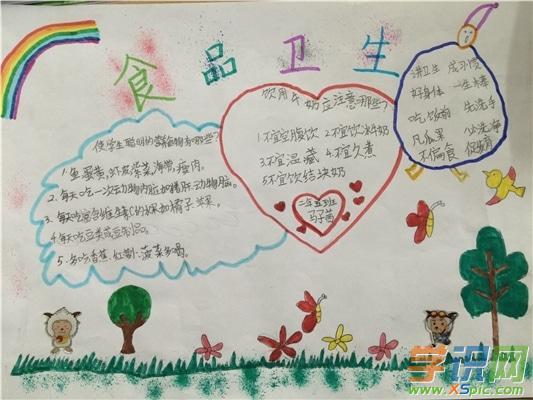 食品卫生
使学生聪明的营养食物有哪些?
1.鱼蛋黄,虾皮紫菜,海带,瘦肉。
2.每天吃一次动物内脏如猪肝动物脑。
3.每天吃富含维生素C的水果如橘子苹果。
4.每天吃豆类或豆制品。
5.多吃香蕉.红薯.菠菜多喝。
饮用牛奶应注意哪些?
1.不宜空腹饮 2.不宜饮冰牛奶
3.不宜温藏 4.不宜久煮
5.不宜饮结块奶
二年五班
讲卫生 成习惯
好身体 一生棒
吃饭前 先洗手
凡瓜果 必洗净
不偏食 保健康
学识网
www.XSpic.com